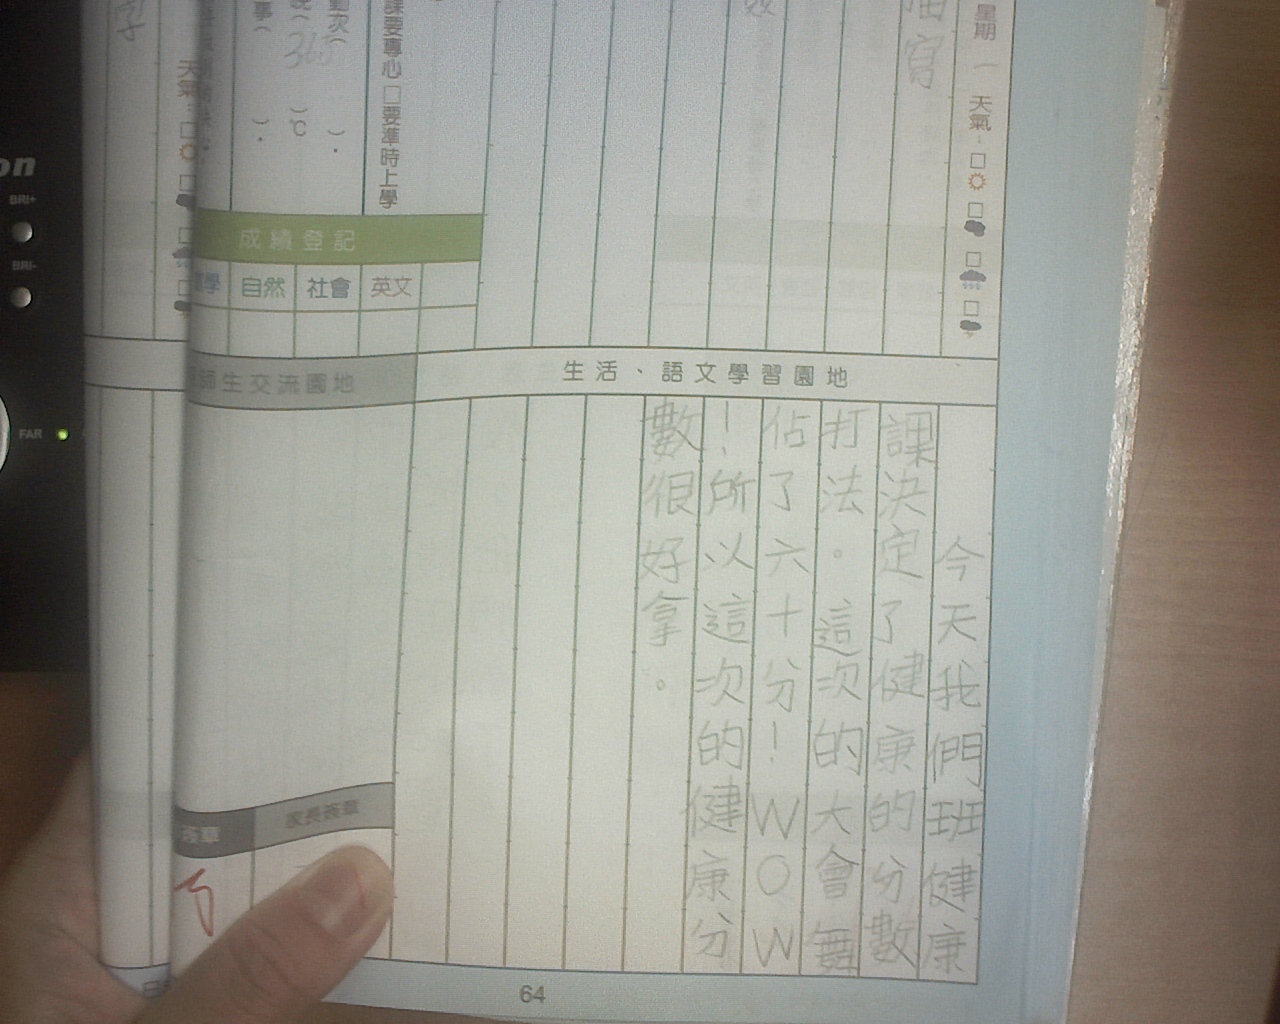 星期一 天氣：
描寫
生活、語文學習園地
今天我們班健康
課決定了健康的分數
打法。這次的大會舞
佔了六十分！WOW
！所以這次的健康分
數很好拿。
課要專心 □要準時上學
次( )。
( 365 )℃
事( )。
成績登記
數學 自然 社會 英文
師生交流園地
家長簽章
簽章
字
天氣：
64
on
BRI+
BRI-
FAR